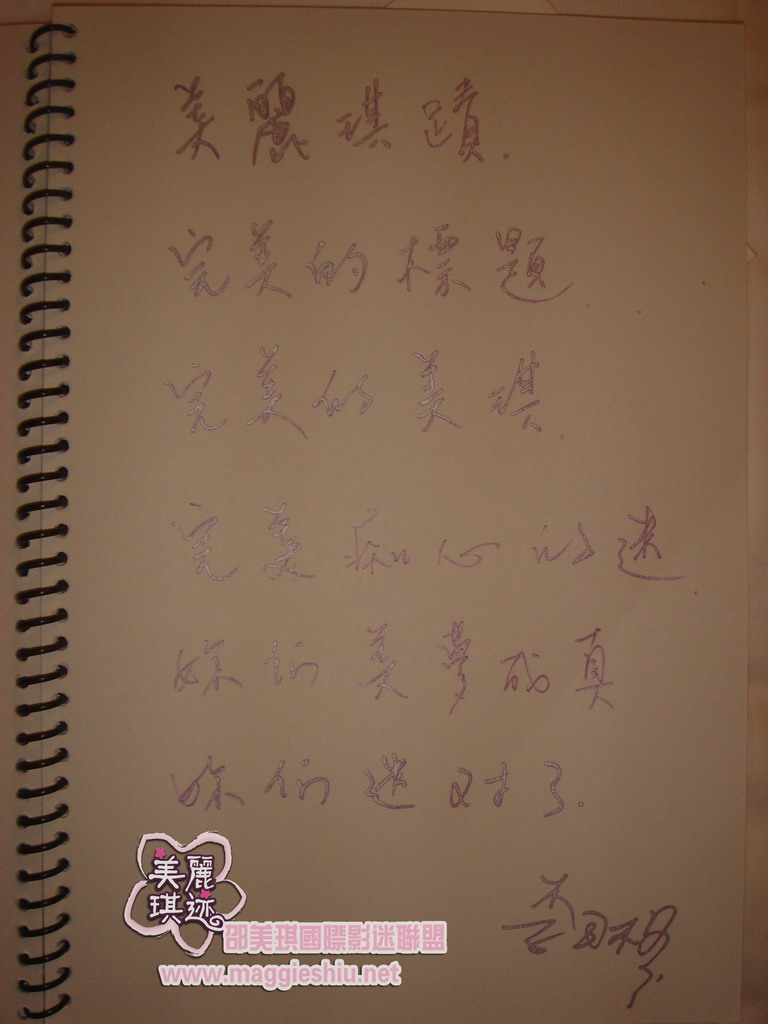 美麗琪蹟.
完美的標題.
完美的美琪.
完美痴心的迷.
妳們美夢成真
妳們迷对了.
美麗琪迹
邵美琪國際影迷聯盟
www.maggieshiu.net